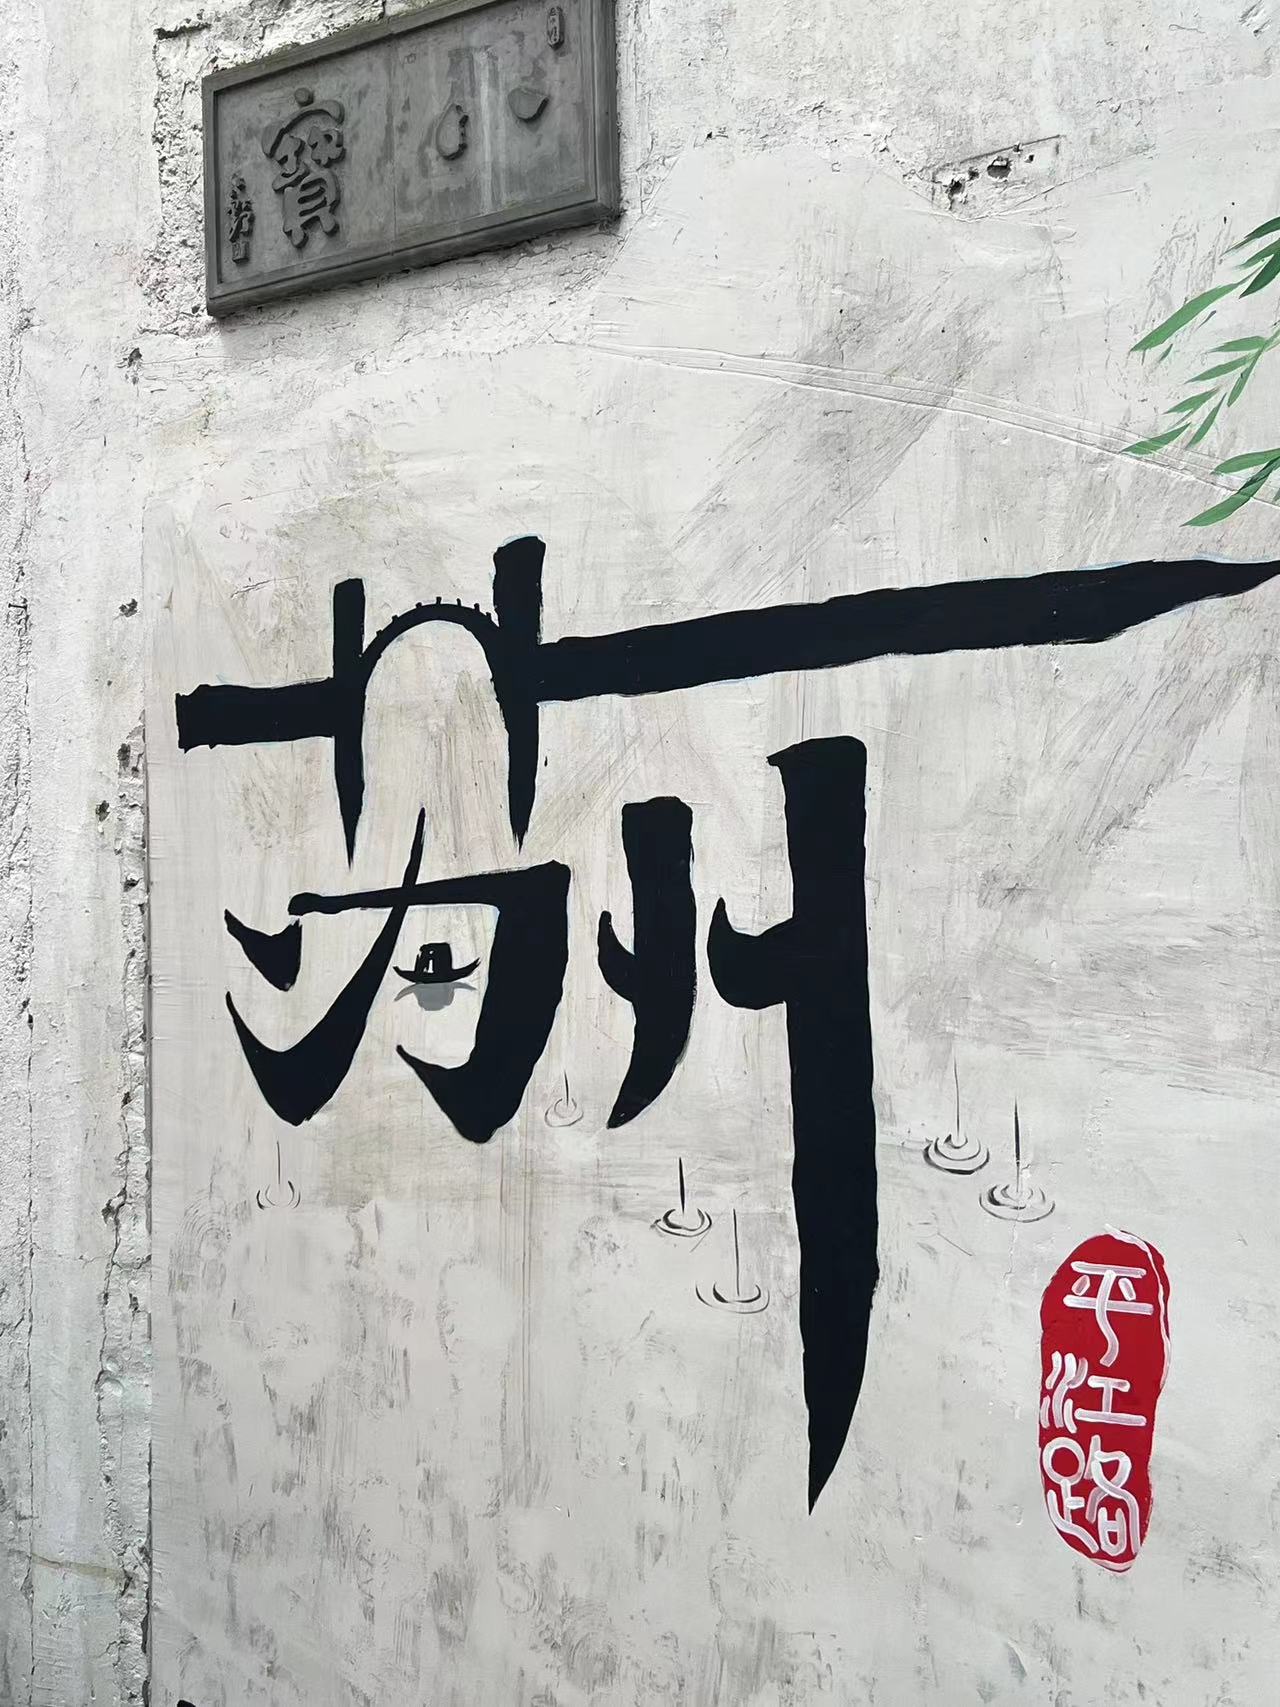 寶
苏州
平江路